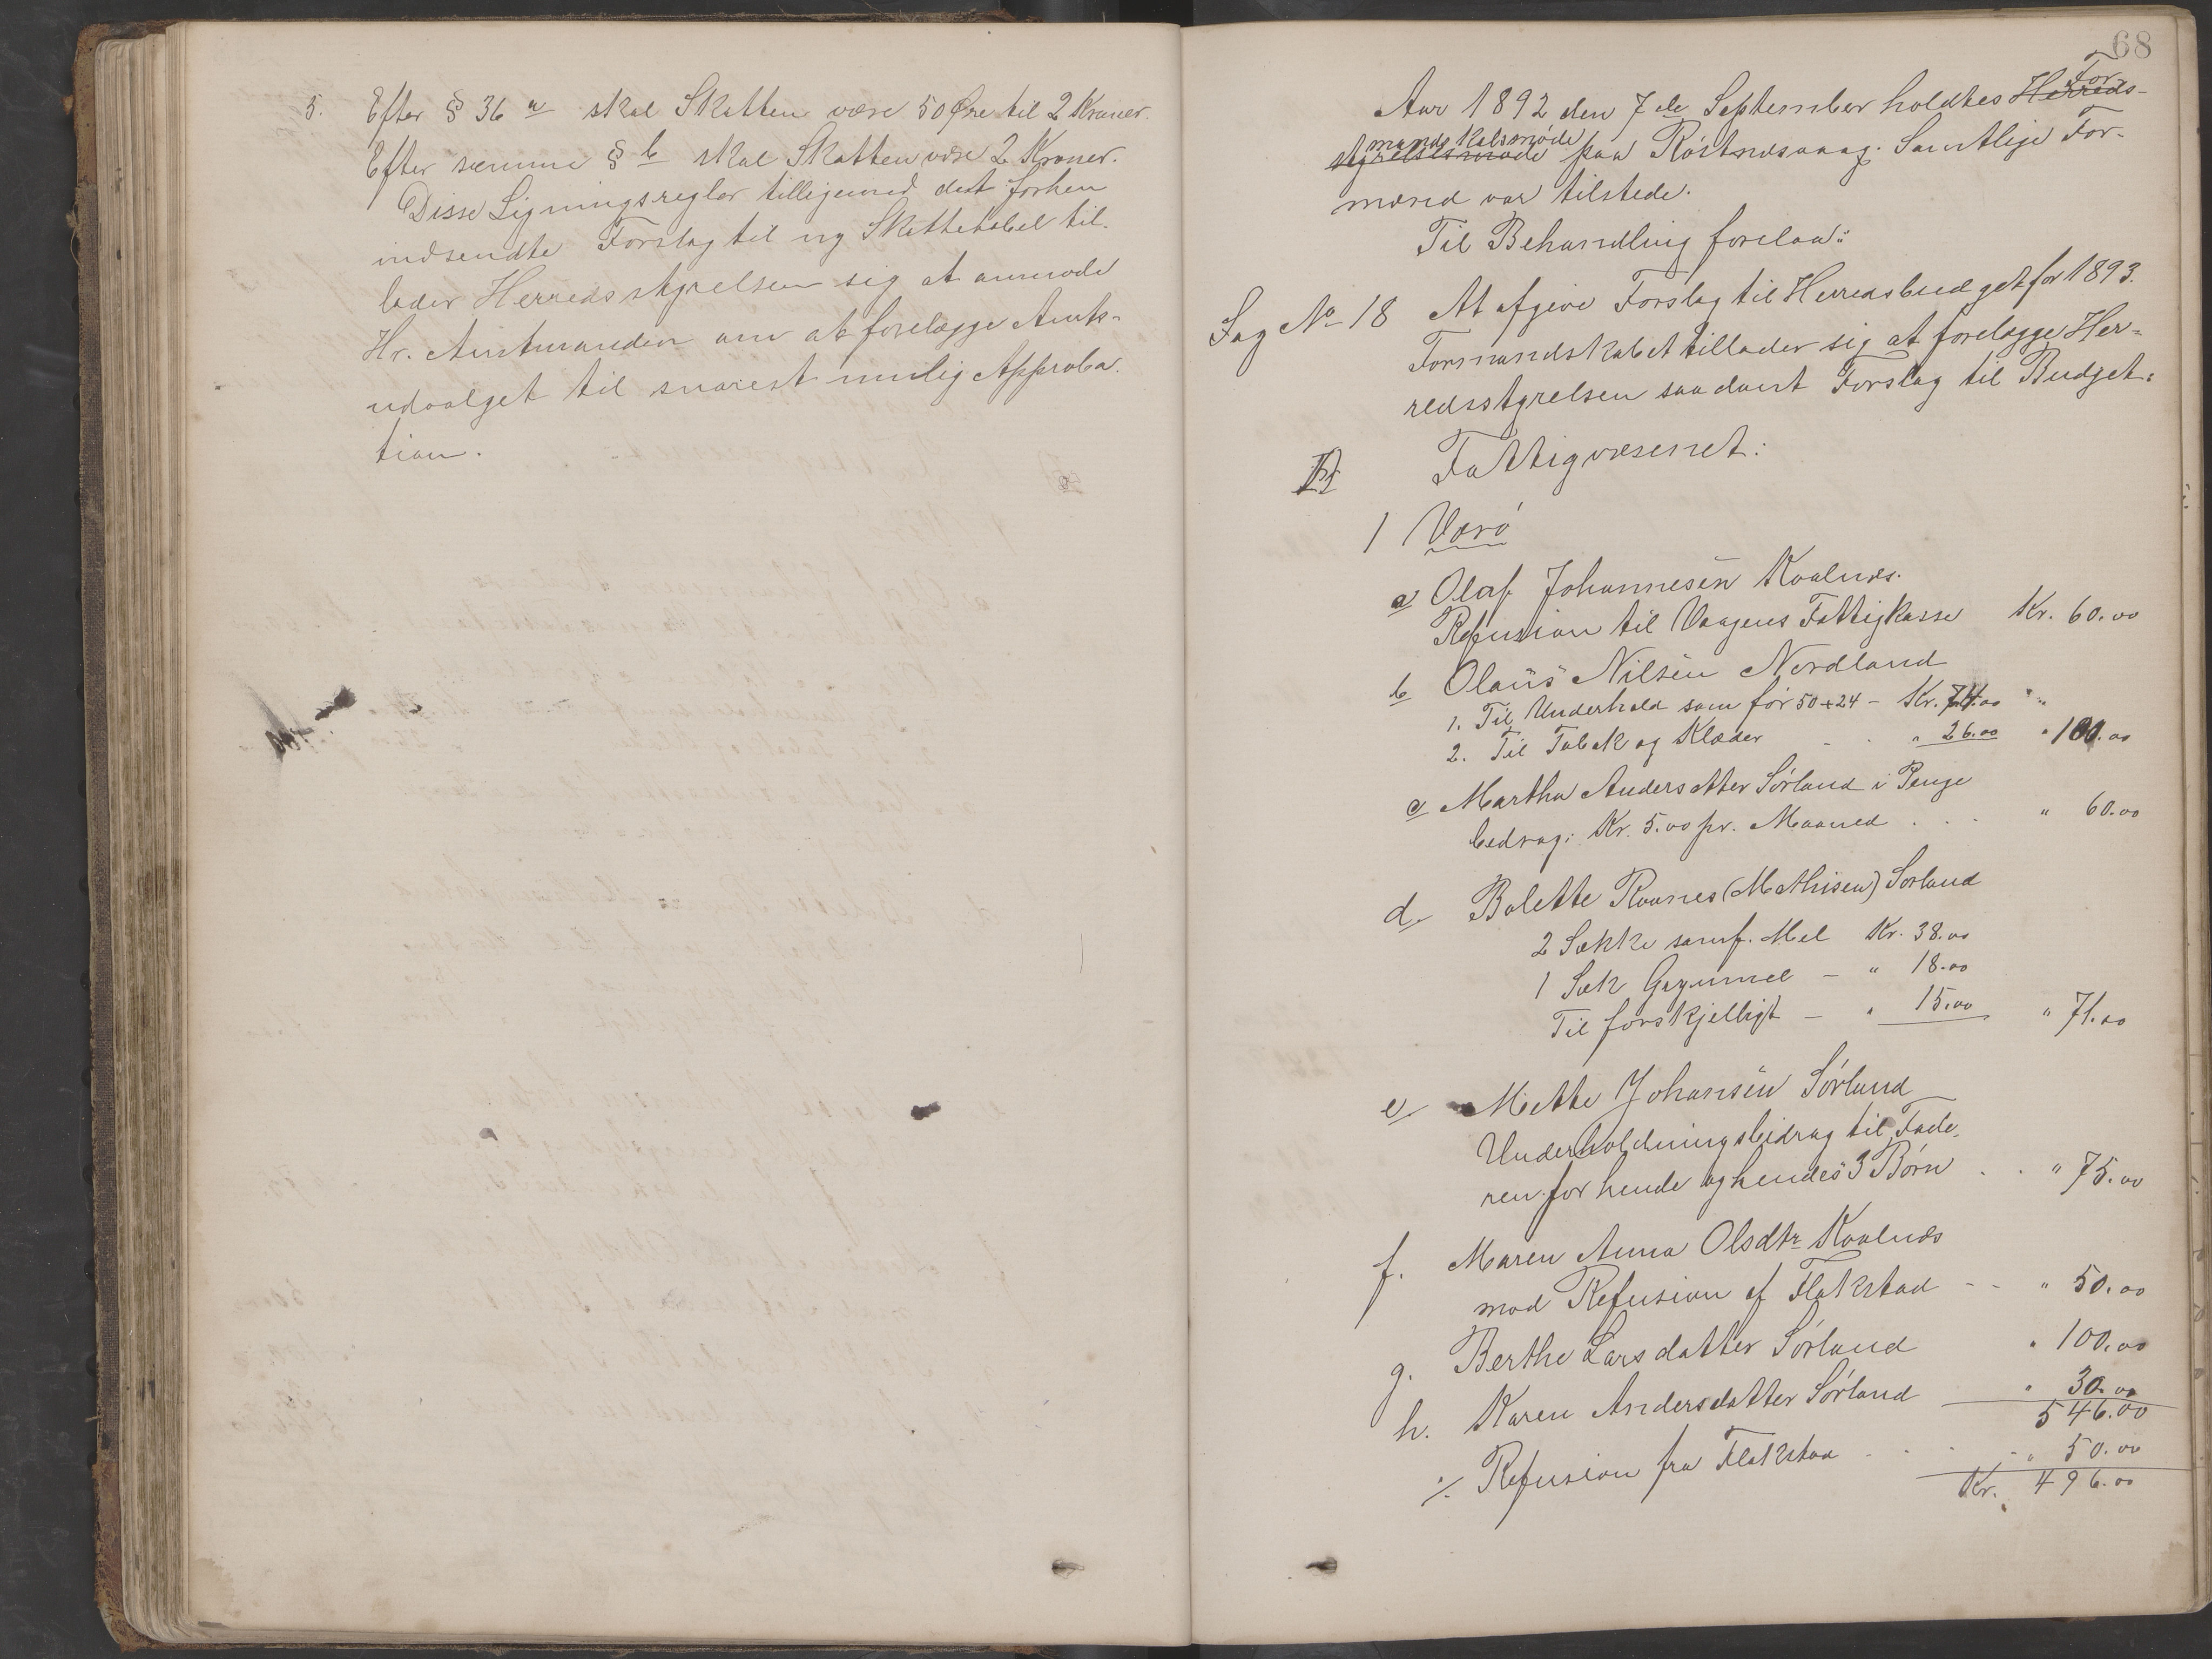 5. Efter § 36 a skal Skatten være 50 Øre til 2 Kroner.
Efter samme § b skal Skatten være 2 Kroner.
Disse Ligningsregler tilligemed det forhen
indsendte Forslag til ny Skattetabel til-
lader Herredsstyrelsen sig at anmode
Hr. Amtmanden om at forelægge Amts-
udvalget til snarest mulig Approba-
tion.
68
Aar 1892 den 7de September holdtes Herreds-
For-
styrelsesmøde paa Røstnesvaag. Samtlige For-
mandskabsmøde
mænd var tilstede.
Til Behandling forelaa:
Sag No 18 At afgive Forslag til Herredsbudget for 1893.
Formandskabet tillader sig at forelægge Her-
redsstyrelsen saadant Forslag til Budget:
Fattigvæsenet:
1 Værø
a Olaf Johannesen Kvalnes.
Refusion til Vaagens Fattigkasse Kr. 60.00
b Olaus Nilsen Nordland
1. Til Underhold som før 50+24 - Kr. 74.00 "
2. Til Tobak og Klæder " 26.00 " 100.00
c Martha Andersdtter Sørland i Penge
bedrag: Kr. 5.00 pr. Maaned . . . " 60.00
d. Bolette Roanes (Mathisen) Sørland
2 Sække samf. Mel Kr. 38.00
1 Sæk Grynmel - " 18.00
Til forskjelligt - " 15.00 " 71.00
e. Mette Johansen Sørland
Underholdningsbidrag til Fade-
ren for hende og hendes 3 Børn . . " 75.00
f. Maren Anna Olsdtr Kvalnes
mod Refusion af Flakstad - - " 50.00
g. Berthe Larsdatter Sørland " 100.00
h. Karen Andersdatter Sørland " 30.00
546.00
÷ Refusion fra Flakstad . . . " 50.00
Kr. 496.00